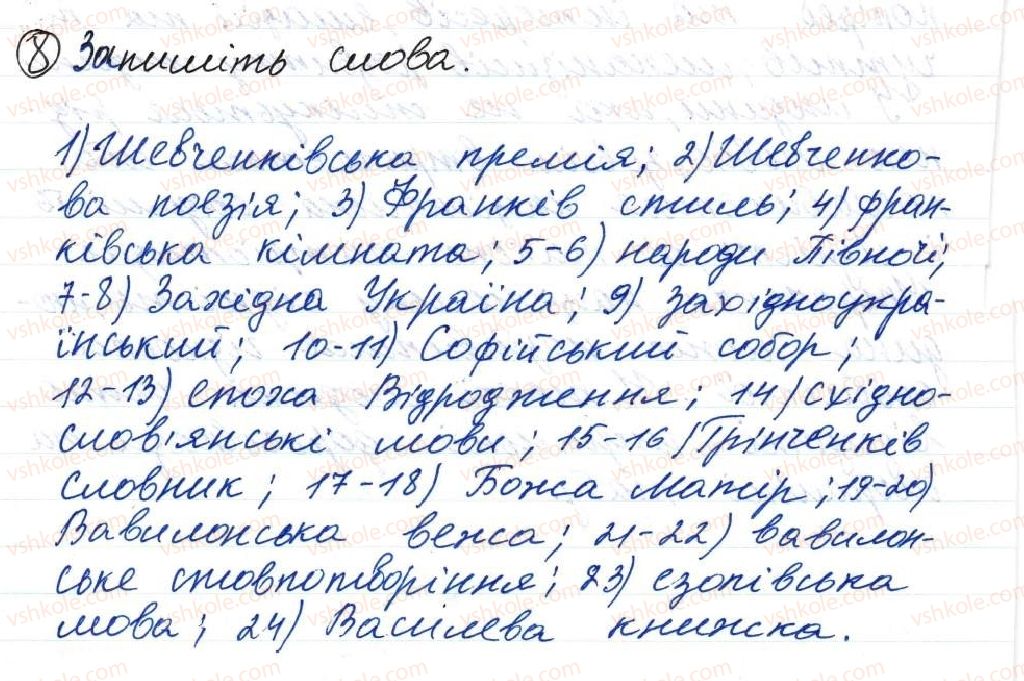 8 Запишіть слова.
1) Шевченківська премія; 2) Шевченко-
ва поезія; 3) Франків стиль; 4) фран-
ківська кімната; 5-6) народи Півночі;
7-8) Західна Україна; 9) західноукра-
їнський; 10-11) Софійський собор;
12-13) епоха Відродження; 14) східно-
слов'янські мови; 15-16) Грінченків
словник; 17-18) Божа Матір; 19-20)
Вавилонська вежа; 21-22) вавилон-
ське стовпотворіння; 23) езопівська
мова; 24) Василева книжка.